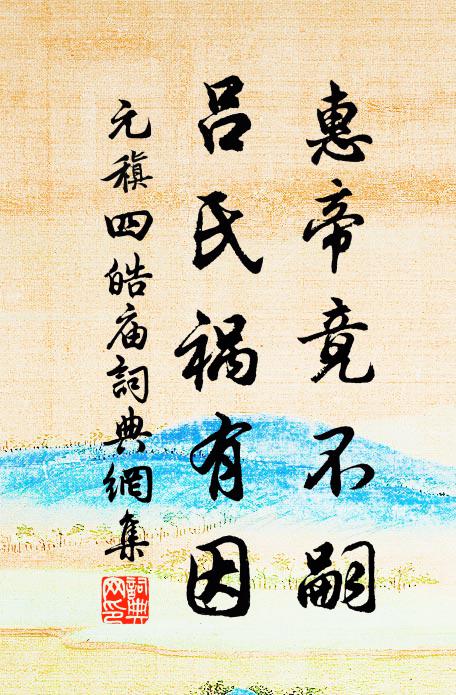 惠帝竟不嗣
吕氏祸有因
元稹四皓庙詞典網集
詞典网印